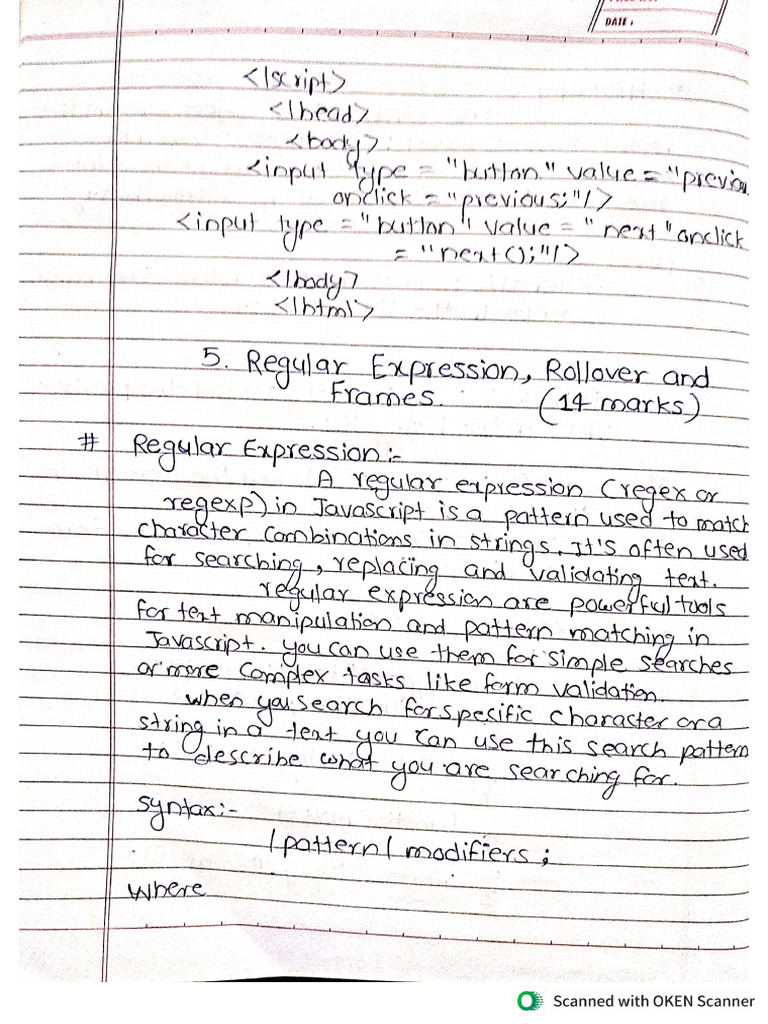 DATE :
</script>
</head>
<body>
<input type = "button" value = "previou
onclick = "previous;"/>
<input type = "button" value = "next" onclick
= "next();"/>
</body>
</html>
5. Regular Expression, Rollover and
Frames. (14 marks)
# Regular Expression:-
A regular expression (regex or
regexp) in Javascript is a pattern used to match
character combinations in strings. It's often used
for searching, replacing and validating text.
regular expression are powerful tools
for text manipulation and pattern matching in
Javascript. you can use them for simple searches
or more complex tasks like form validation.
when you search for spesific character or a
string in a text you can use this search pattern
to describe what you are searching for.
syntax:-
/pattern/ modifiers ;
where
Scanned with OKEN Scanner